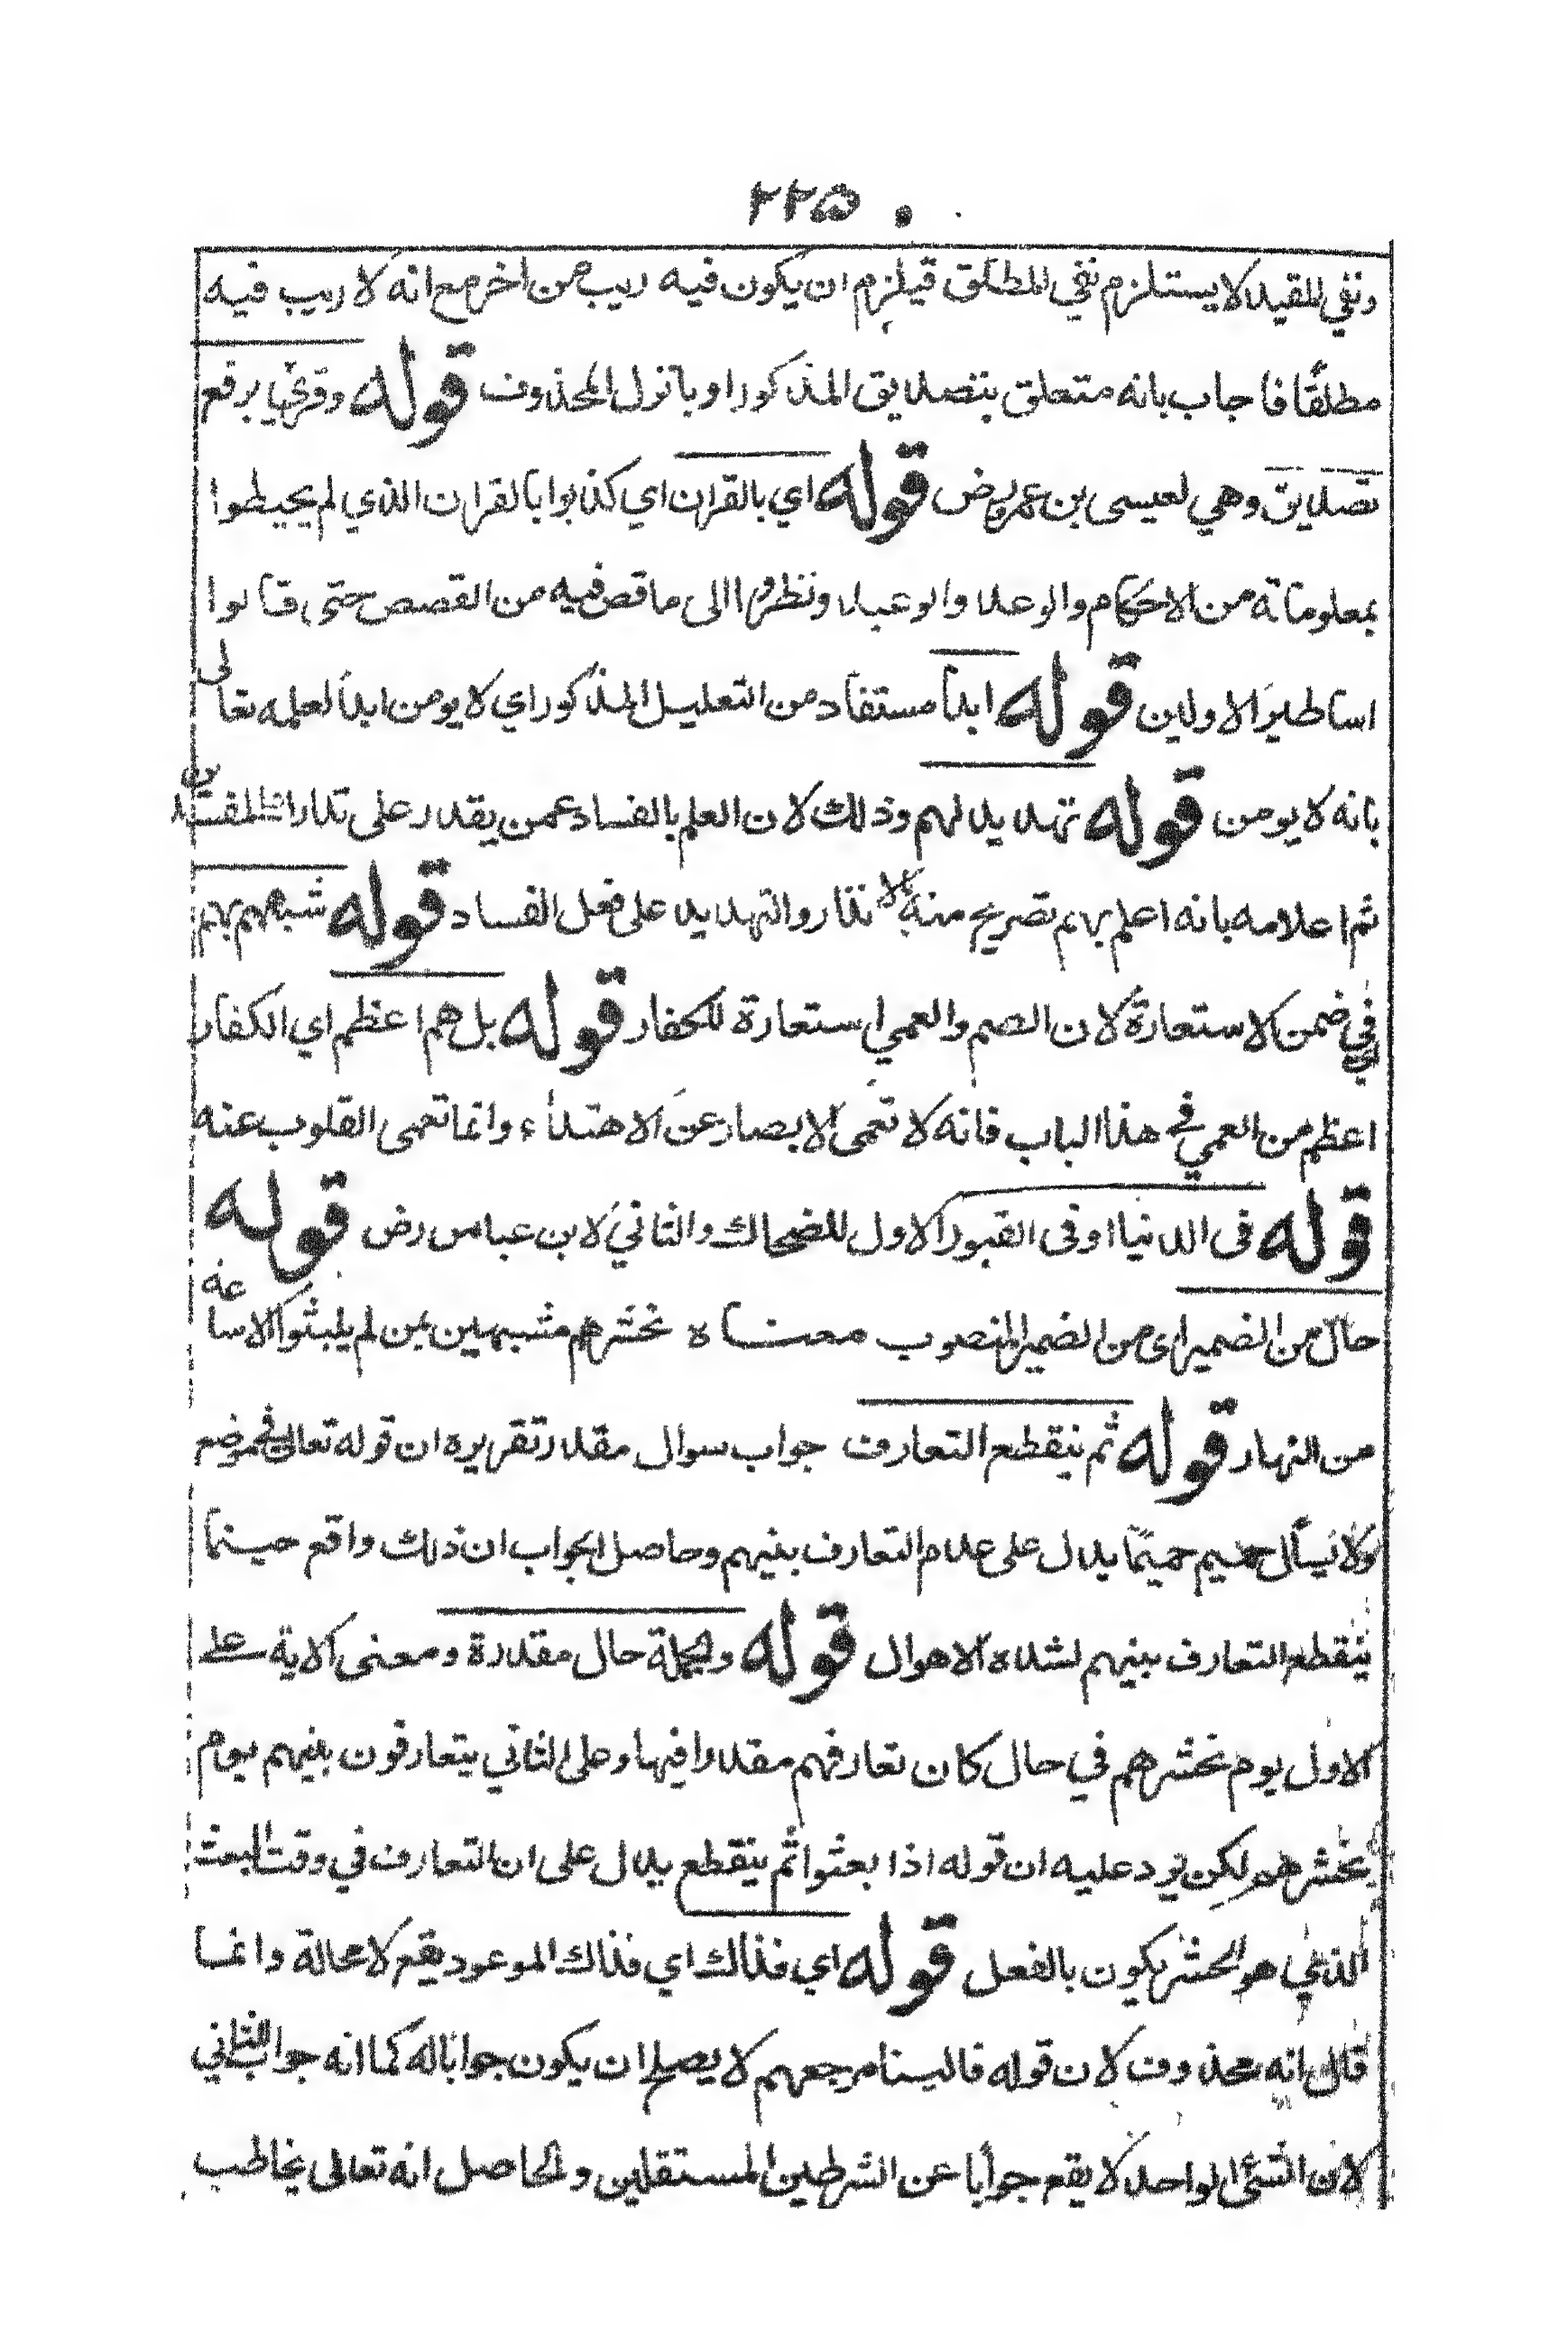 ۲۲۵
ونفي المقيد لا يستلزم نفي المطلق فيلزم ان يكون فيه ريب من اخر مع انه لا ريب فيه
مطلقًا فاجاب بانه متعلق بتصديق المذكور او بانزل المحذوف قوله وقرئ برفع
تصديق وهي لعيسى بن عمر رض قوله اي بالقران اي كذبوا بالقران الذي لم يحيطوا
بمعلوماته من الاحكام والوعد والوعيد ونظروا الى ما قص فيه من القصص حتى قالوا
اساطير الاولين قوله ابدًا مستفاد من التعليل المذكور اي لا يومن ابدًا لعلمه تعالى
بانه لا يومن قوله تهديد لهم وذلك لان العلم بالفساد عمن يقدر على تدارك المفسدين
ثم اعلامه بانه اعلم بهم تصريح منه بالانذار والتهديد على فعل الفساد قوله شبههم بهم
في ضمن الاستعارة لان الصم والعمي استعارة للكفار قوله بل هم اعظم اي الكفار
اعظم من العمي في هذا الباب فانه لا تعمى الابصار عن الاهتداء وانما تعمى القلوب عنه
قوله في الدنيا او في القبور الاول للضحاك والثاني لابن عباس رض قوله
حال من الضمير اى من الضمير المنصوب معناه نحشرهم مشبهين بمن لم يلبثوا الا ساعة
من النهار قوله ثم ينقطع التعارف جواب سوال مقدر تقريره ان قوله تعالى في موضع
ولا يسأل حميم حميمًا يدل على عدم التعارف بينهم وحاصل الجواب ان ذلك واقع حينما
ينقطع التعارف بينهم لشدة الاهوال قوله والجملة حال مقدرة ومعنى الاية على
الاول يوم نحشرهم في حال كان تعارفهم مقدرا فيها وعلى الثاني يتعارفون بينهم يوم
نحشرهم لكن يرد عليه ان قوله اذا بعثوا ثم ينقطع يدل على ان التعارف في وقت البعث
الذي هو الحشر يكون بالفعل قوله اي فذاك اي فذاك الموعود يقع لا محالة وانما
قال انه محذوف لان قوله فالينا مرجعهم لا يصلح ان يكون جوابا له كما انه جواب للثاني
لان الشئ الواحد لا يقع جوابا عن الشرطين المستقلين والحاصل انه تعالى يخاطب